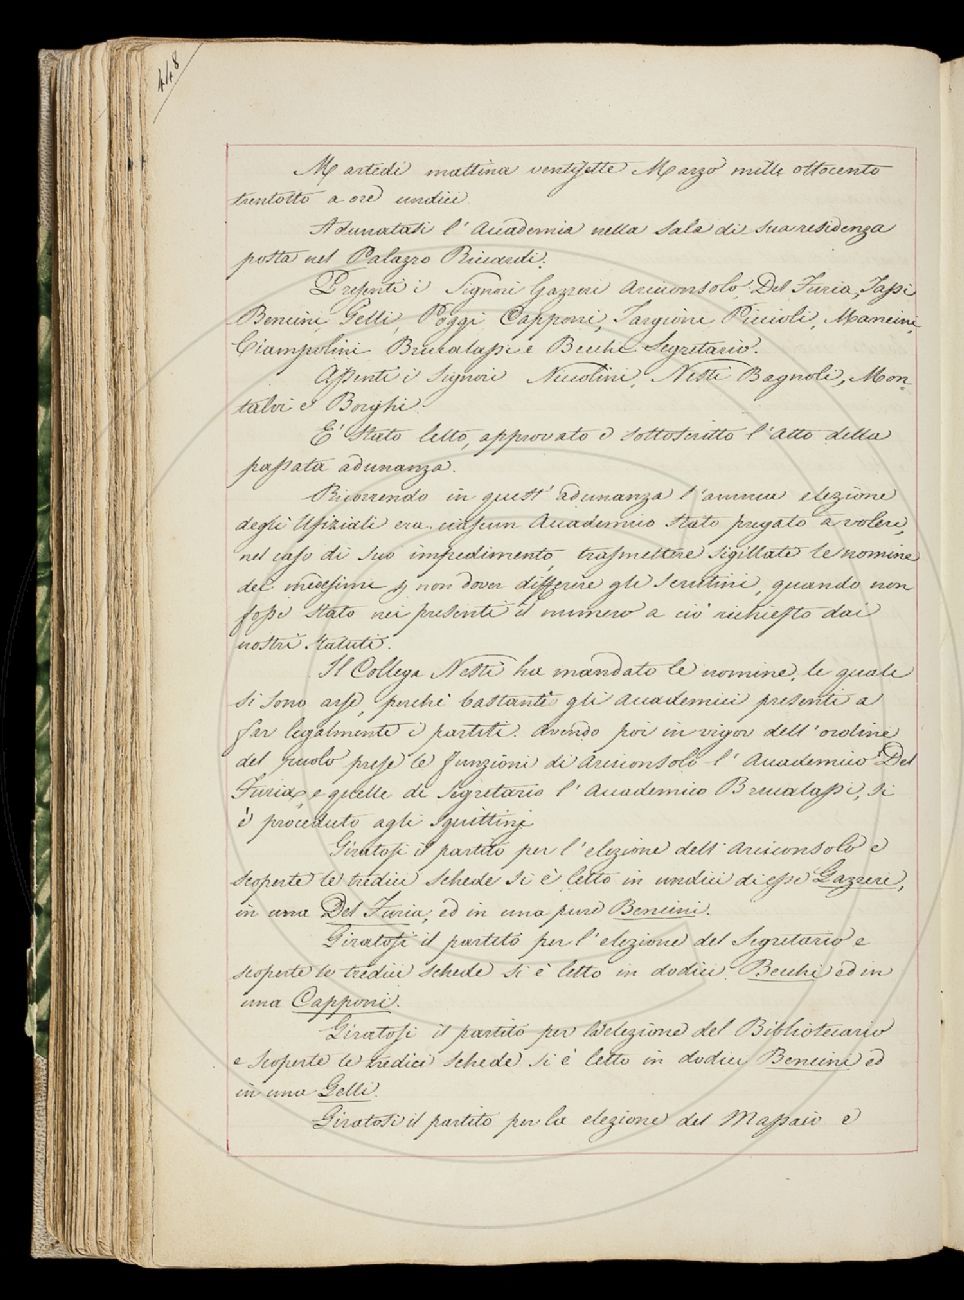 448
Martedi mattina ventisette Marzo mille ottocento
trentotto a ore undici.
Adunatasi l'Accademia nella Sala di sua residenza
posta nel Palazzo Riccardi.
Presenti i Signori Gazzeri Arciconsolo, Del Furia, Tassi
Bencini Gelli, Poggi, Capponi, Targioni Piccioli, Mancini,
Ciampolini Brucalassi e Becchi Segretario.
Assenti i Signori Niccolini, Nesti Bagnoli, Mon-
talvi e Borghi.
E' stato letto, approvato e sottoscritto l'Atto della
passata adunanza.
Ricorrendo in quest'adunanza l'annua elezione
degli Ufiziali era ciascun Accademico stato pregato a volere,
nel caso di suo impedimento, trasmettere sigillate le nomine
dei medesimi p non dover differire gli scruttini, quando non
fosse stato nei presenti il numero a ciò richiesto dai
nostri statuti.
Il Collega Nesti ha mandato le nomine, le quali
si sono arse, perchè bastanti gli Accademici presenti a
far legalmente i partiti. Avendo poi in vigor dell'ordine
del ruolo prese le funzioni di Arciconsolo l'Accademico Del
Furia, e quelle di Segretario l'Accademico Brucalassi, si
è proceduto agli squittinj
Giratosi il partito per l'elezione dell'Arciconsolo e
scoperte le tredici schede si è letto in undici di esse Gazzeri,
in una Del Furia, ed in una pure Bencini.
Giratosi il partito per l'elezione del Segretario e
scoperte le tredici schede si è letto in dodici Becchi ed in
una Capponi.
Giratosi il partito per l'elezione del Bibliotecario
e scoperte le tredici schede si è letto in dodici Bencini ed
in una Gelli.
Giratosi il partito per la elezione del Massaio e